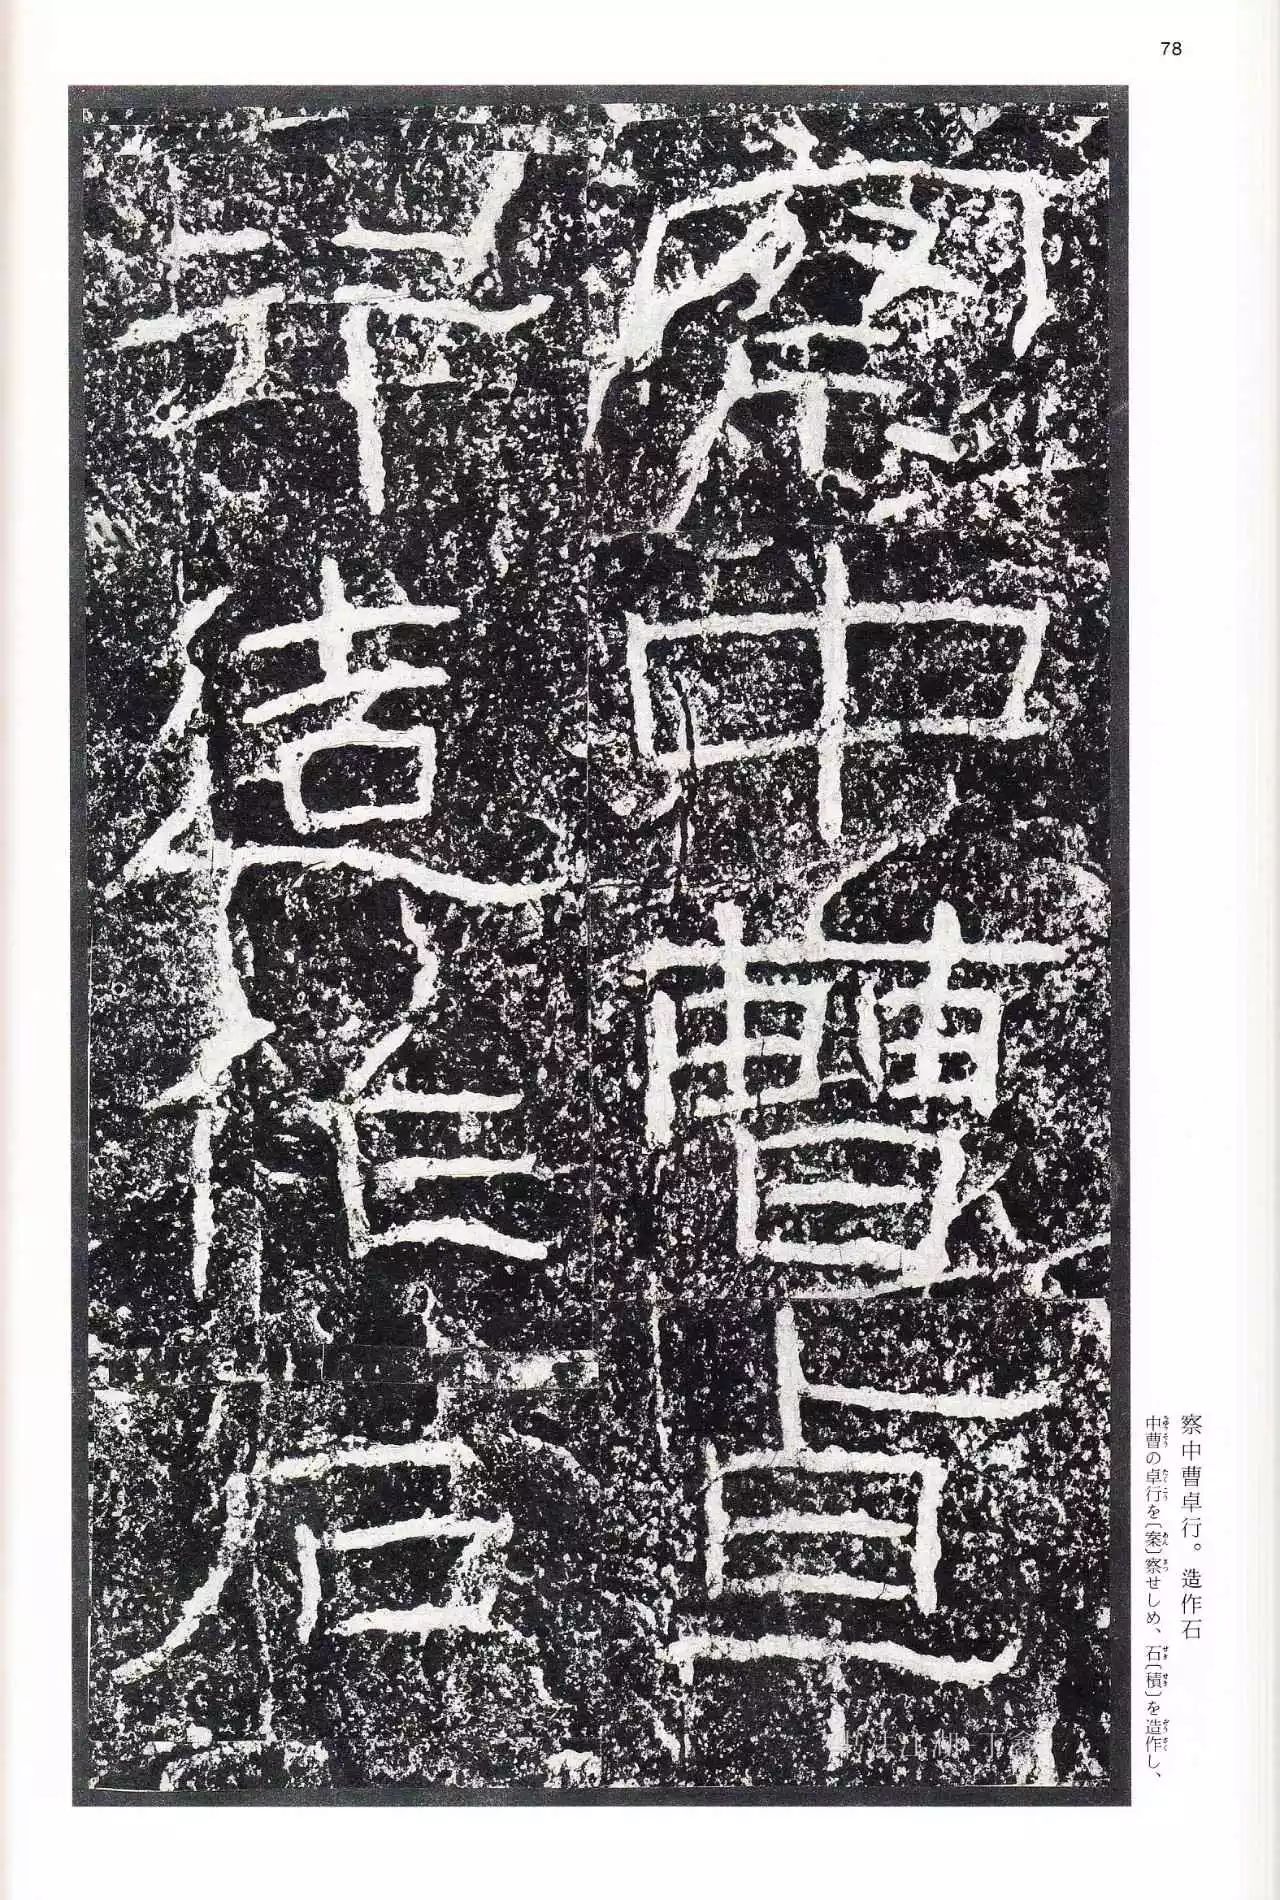 78
察中曹卓
行造作石
察中曹卓行。造作石
中曹の卓行を〔案〕察せしめ、石〔積〕を造作し、